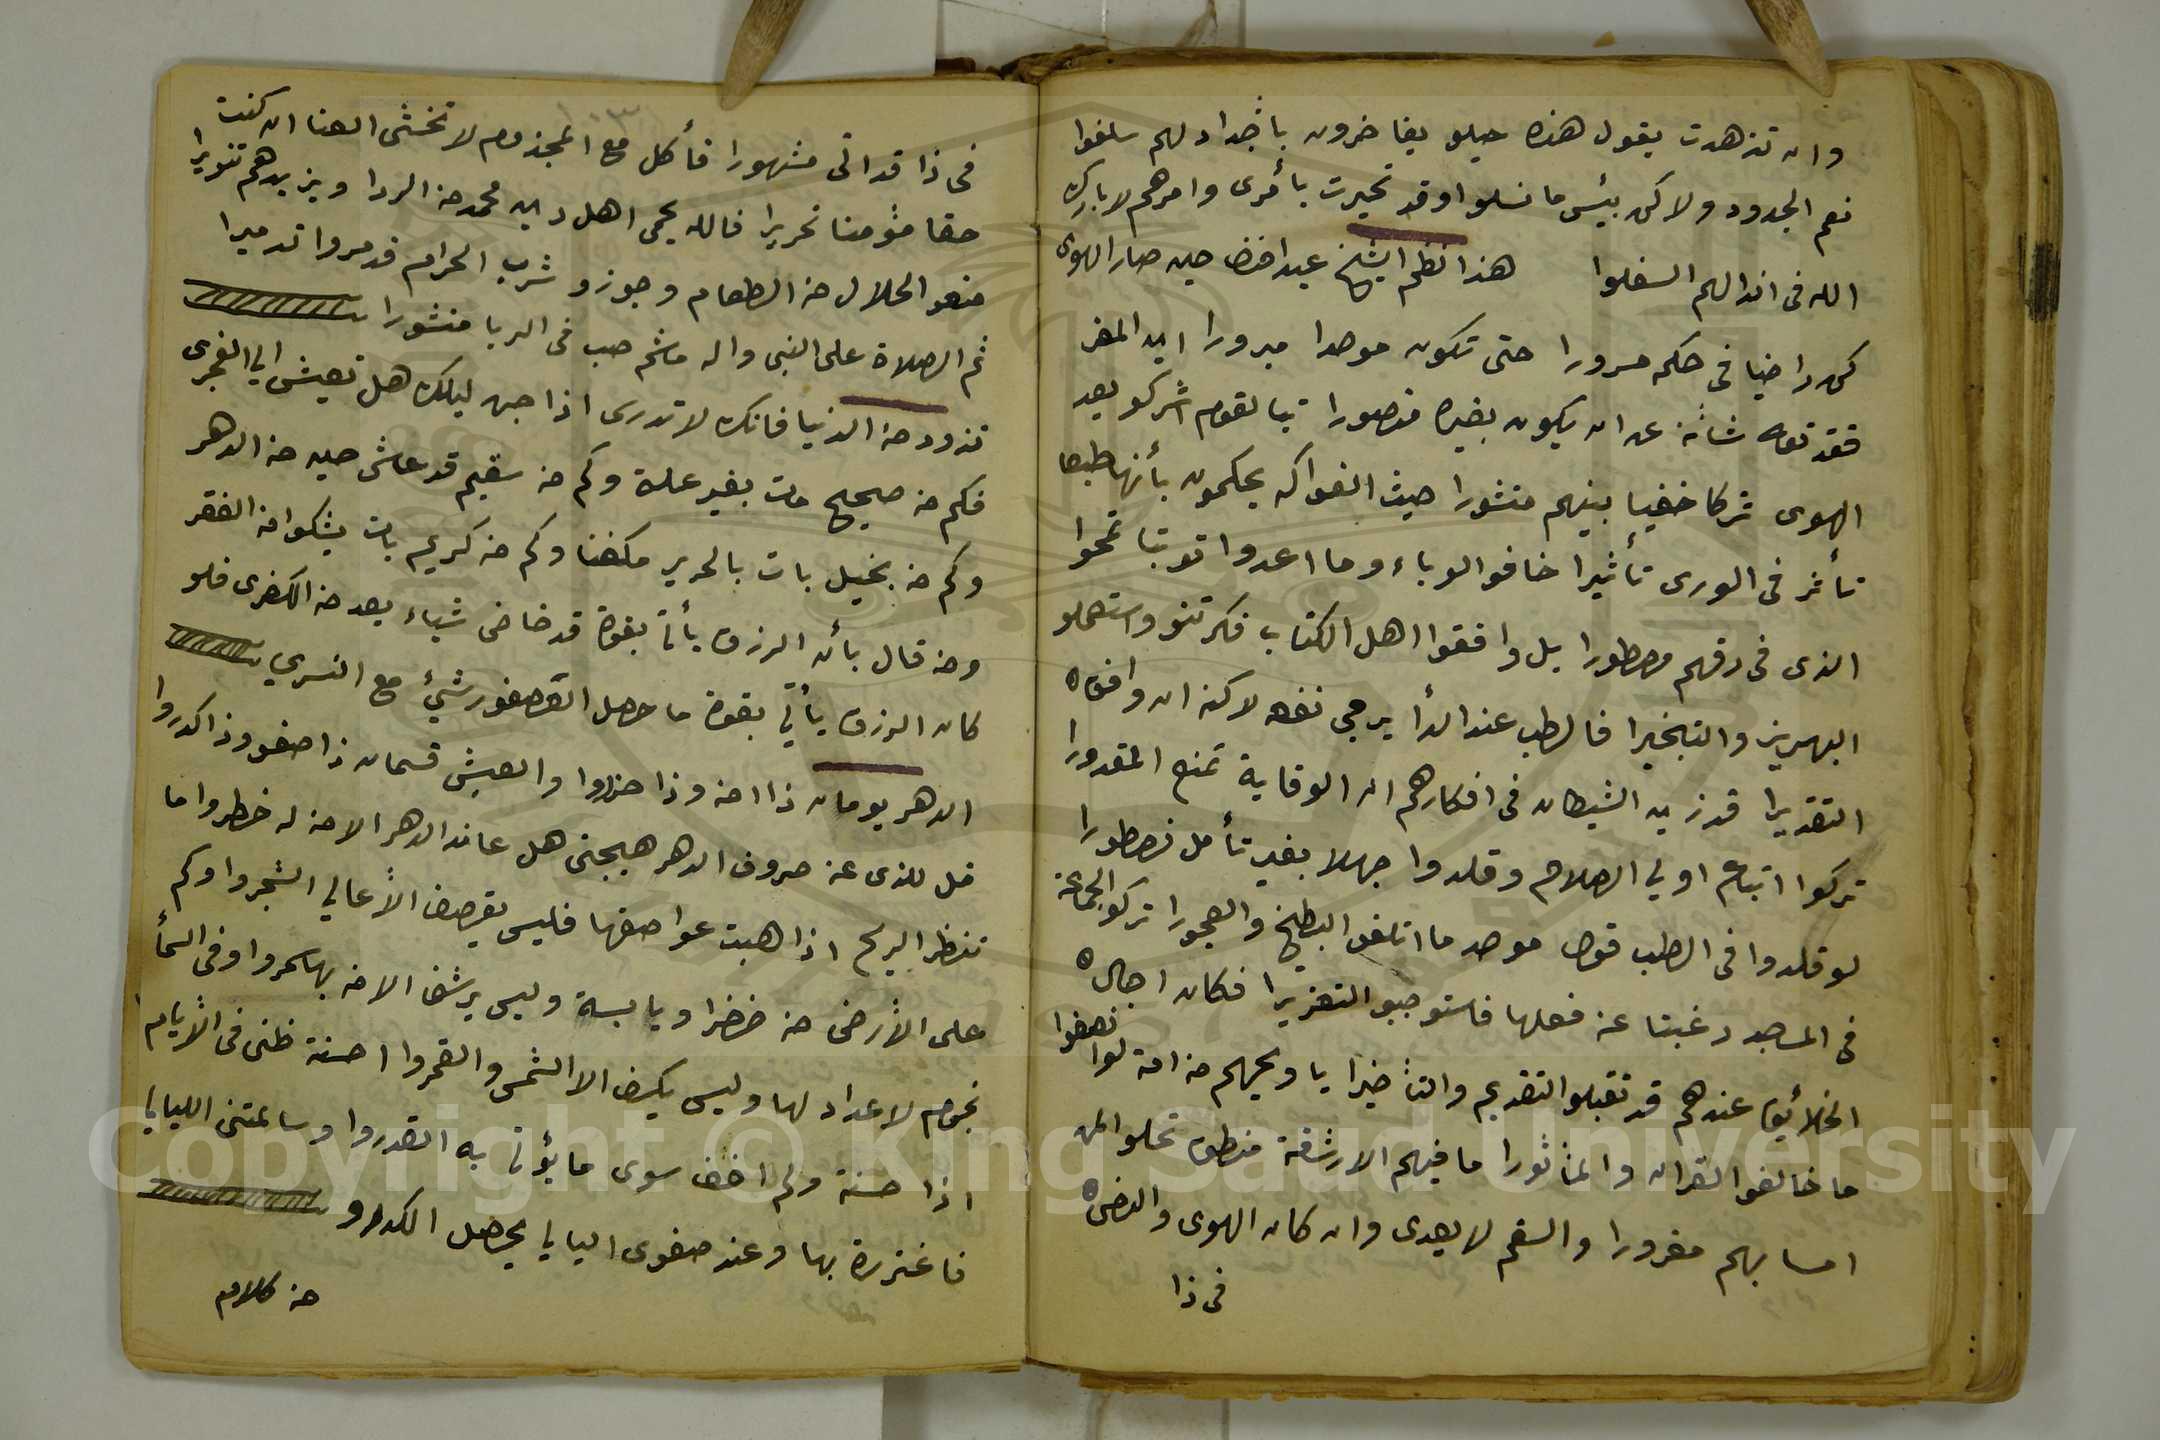 وان تزهدت يقول هذه حيلو يفاخرون باجداد لهم سلفوا
نعم الجدود ولاكن بئس ما نسلوا وقد تحيرت بأمرى وامرهم لا بارك
الله فى انذالهم السفلوا هذا نظم الشيخ عبد حين صار الهوى
كن راضيا فى حكمه مسرورا حتى تكون موحدا مبرورا اين المفر
فقد تعالى شانه عن ان يكون بغيره منصورا تبا لقوم اشركو بعد
الهوى شركا خفيا بينهم منشورا حيث الفواكه يحكمون بأنها طبعا
تأثر فى الورى تأثيرا خافو الوباء وما اعدوا توبتا تمحوا
الذى فى رقهم مصطورا بل وافقوا اهل الكتاب فكرتنو واستعملو
البهريز والتبخيرا فالطب عند الدأ يرجى نفعه لاكنه ان وافق
التقديرا قد زين الشيطان فى افكارهم ان الوقاية تمنع المقدورا
تركوا اتباع اولي الصلاح وقلدوا جهلا بغير تأمل نصطورا
لو قلدوا فى الطب قول موحد ما اتلفو البطيخ والعجورا تركو الجماعة
فى المساجد رغبتا عن فعلها فاستوجبو التعزيرا فكان اجال
الخلائق عندهم قد تقبلو التقديم والتأخيرا يا ويحهم من امة لوا نصفوا
ما خالفو القران والمأثورا ما فيهم الا رشقة منطق تحلو لمن
امسا بهم مغرورا والسقم لا يعدى وان كان الهوى والعضى
فى ذا
فى ذا قد اتى مشهورا فأكل مع المجذوم لا تخشى العنا ان كنت
حقا مؤمنا نحريرا فالله يحمى اهل دين محمد من الردا ويزيدهم تنويرا
منعو الحلال من الطعام وجوزو شرب الحرام قدمروا تدميرا
ثم الصلاة على النبى واله ما شم صب فى الربا منشورا
تزود من الدنيا فانك لا تدرى اذا جن ليلك هل تعيش الي الفجرى
فكم من صحيح مات بغير علة وكم من سقيم قد عاش حين من الدهر
وكم من بخيل بات بالحرير مكفنا وكم من كريم بات يشكوا من الفقر
ومن قال بأن الرزق يأتى بقوة قد خاض شياء بعد من الكفرى فلو
كان الرزق يأتي بقوة ما حصل العصفور شيئ مع النسري
الدهر يومان ذا امن وذا حذروا والعيش قسمان ذا صفو وذا كدروا
قل للذى عن صروف الدهر هيجنى هل عاند الدهر الا من له خطروا ما
تنظر الريح اذا هبت عواصفها فليس يقصف الا عالي الشجروا وكم
على الأرض من خضرا ويابسة وليس يرشف الا من بها سمروا وفى السمأ
نجوم لا عداد لها وليس يكسف الا الشمس والقمروا احسنت ظنى فى الأيام
اذا حسنة ولم اخف سوى ما يؤتى به القدروا وسالمتنى الليالي
فاغتررة بها وعند صفوى اليالي يحصل الكدرو
من كلام